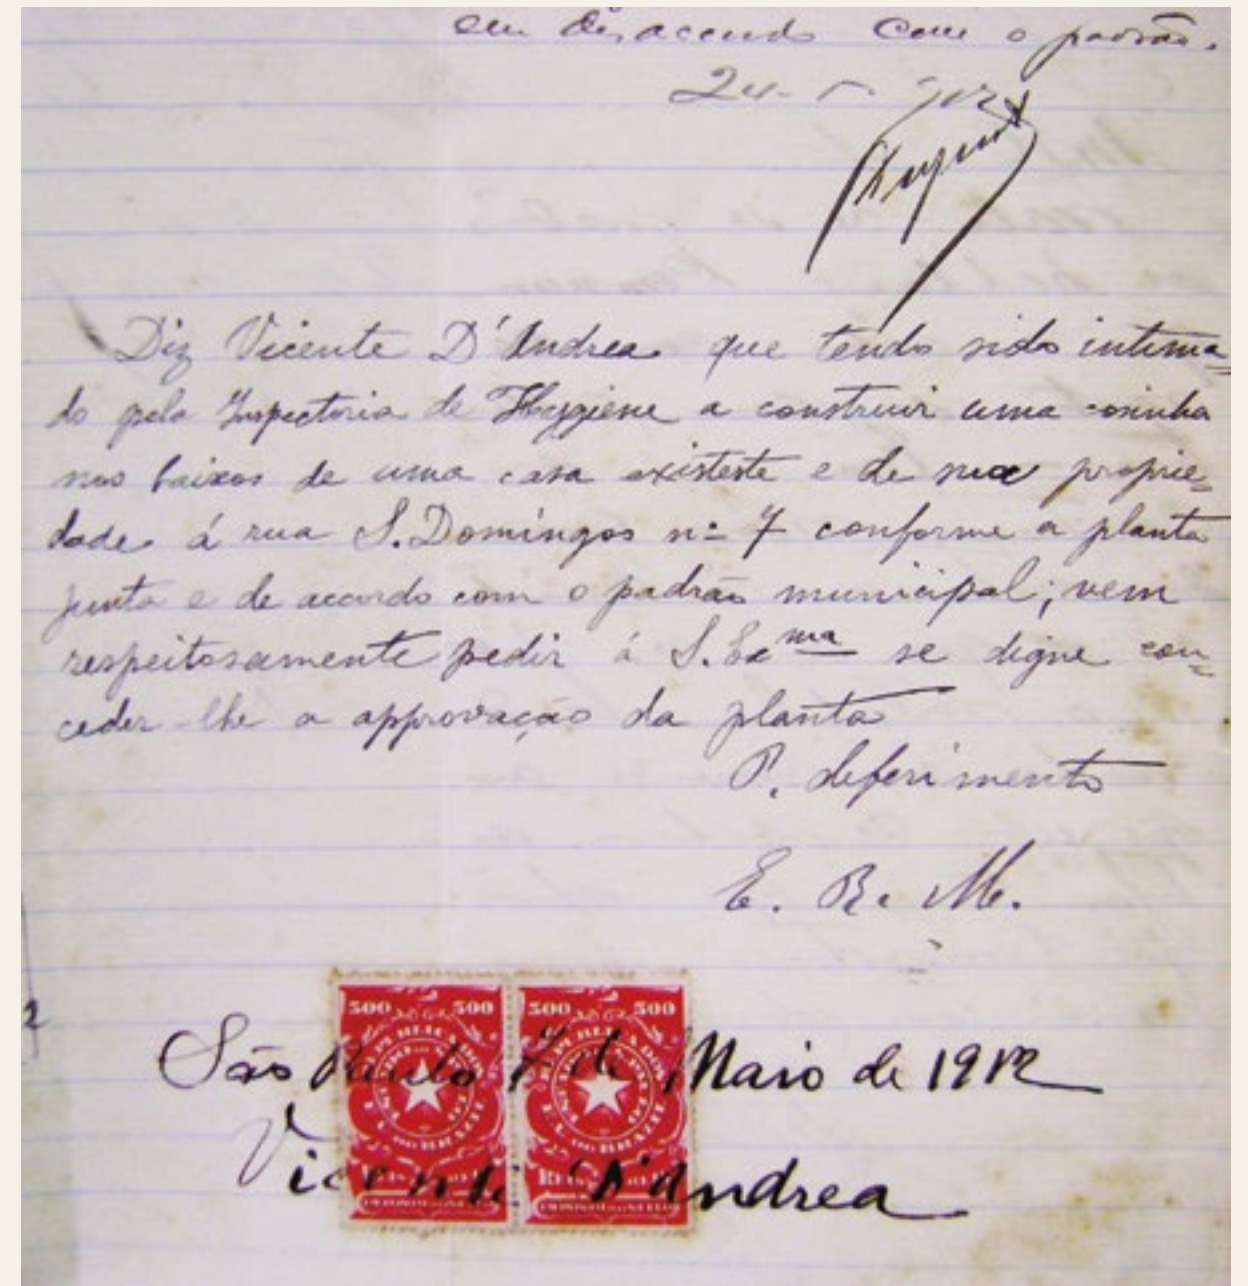 em desaccordo com o padrão.
24-5-912
Diz Vicente D'Andrea que tendo sido intima=
do pela Inspectoria de Hygiene a construir uma cosinha
nos baixos de uma casa existeste e de sua proprie=
dade á rua S. Domingos nº 7 conforme a planta
junta e de accordo com o padrão municipal; vem
respeitosamente pedir á S. Exma se digne con=
ceder-lhe a approvação da planta
P. deferimento
E. R. M.
500 500 500 500
São Paulo 7 de Maio de 1912
Vicente D'Andrea